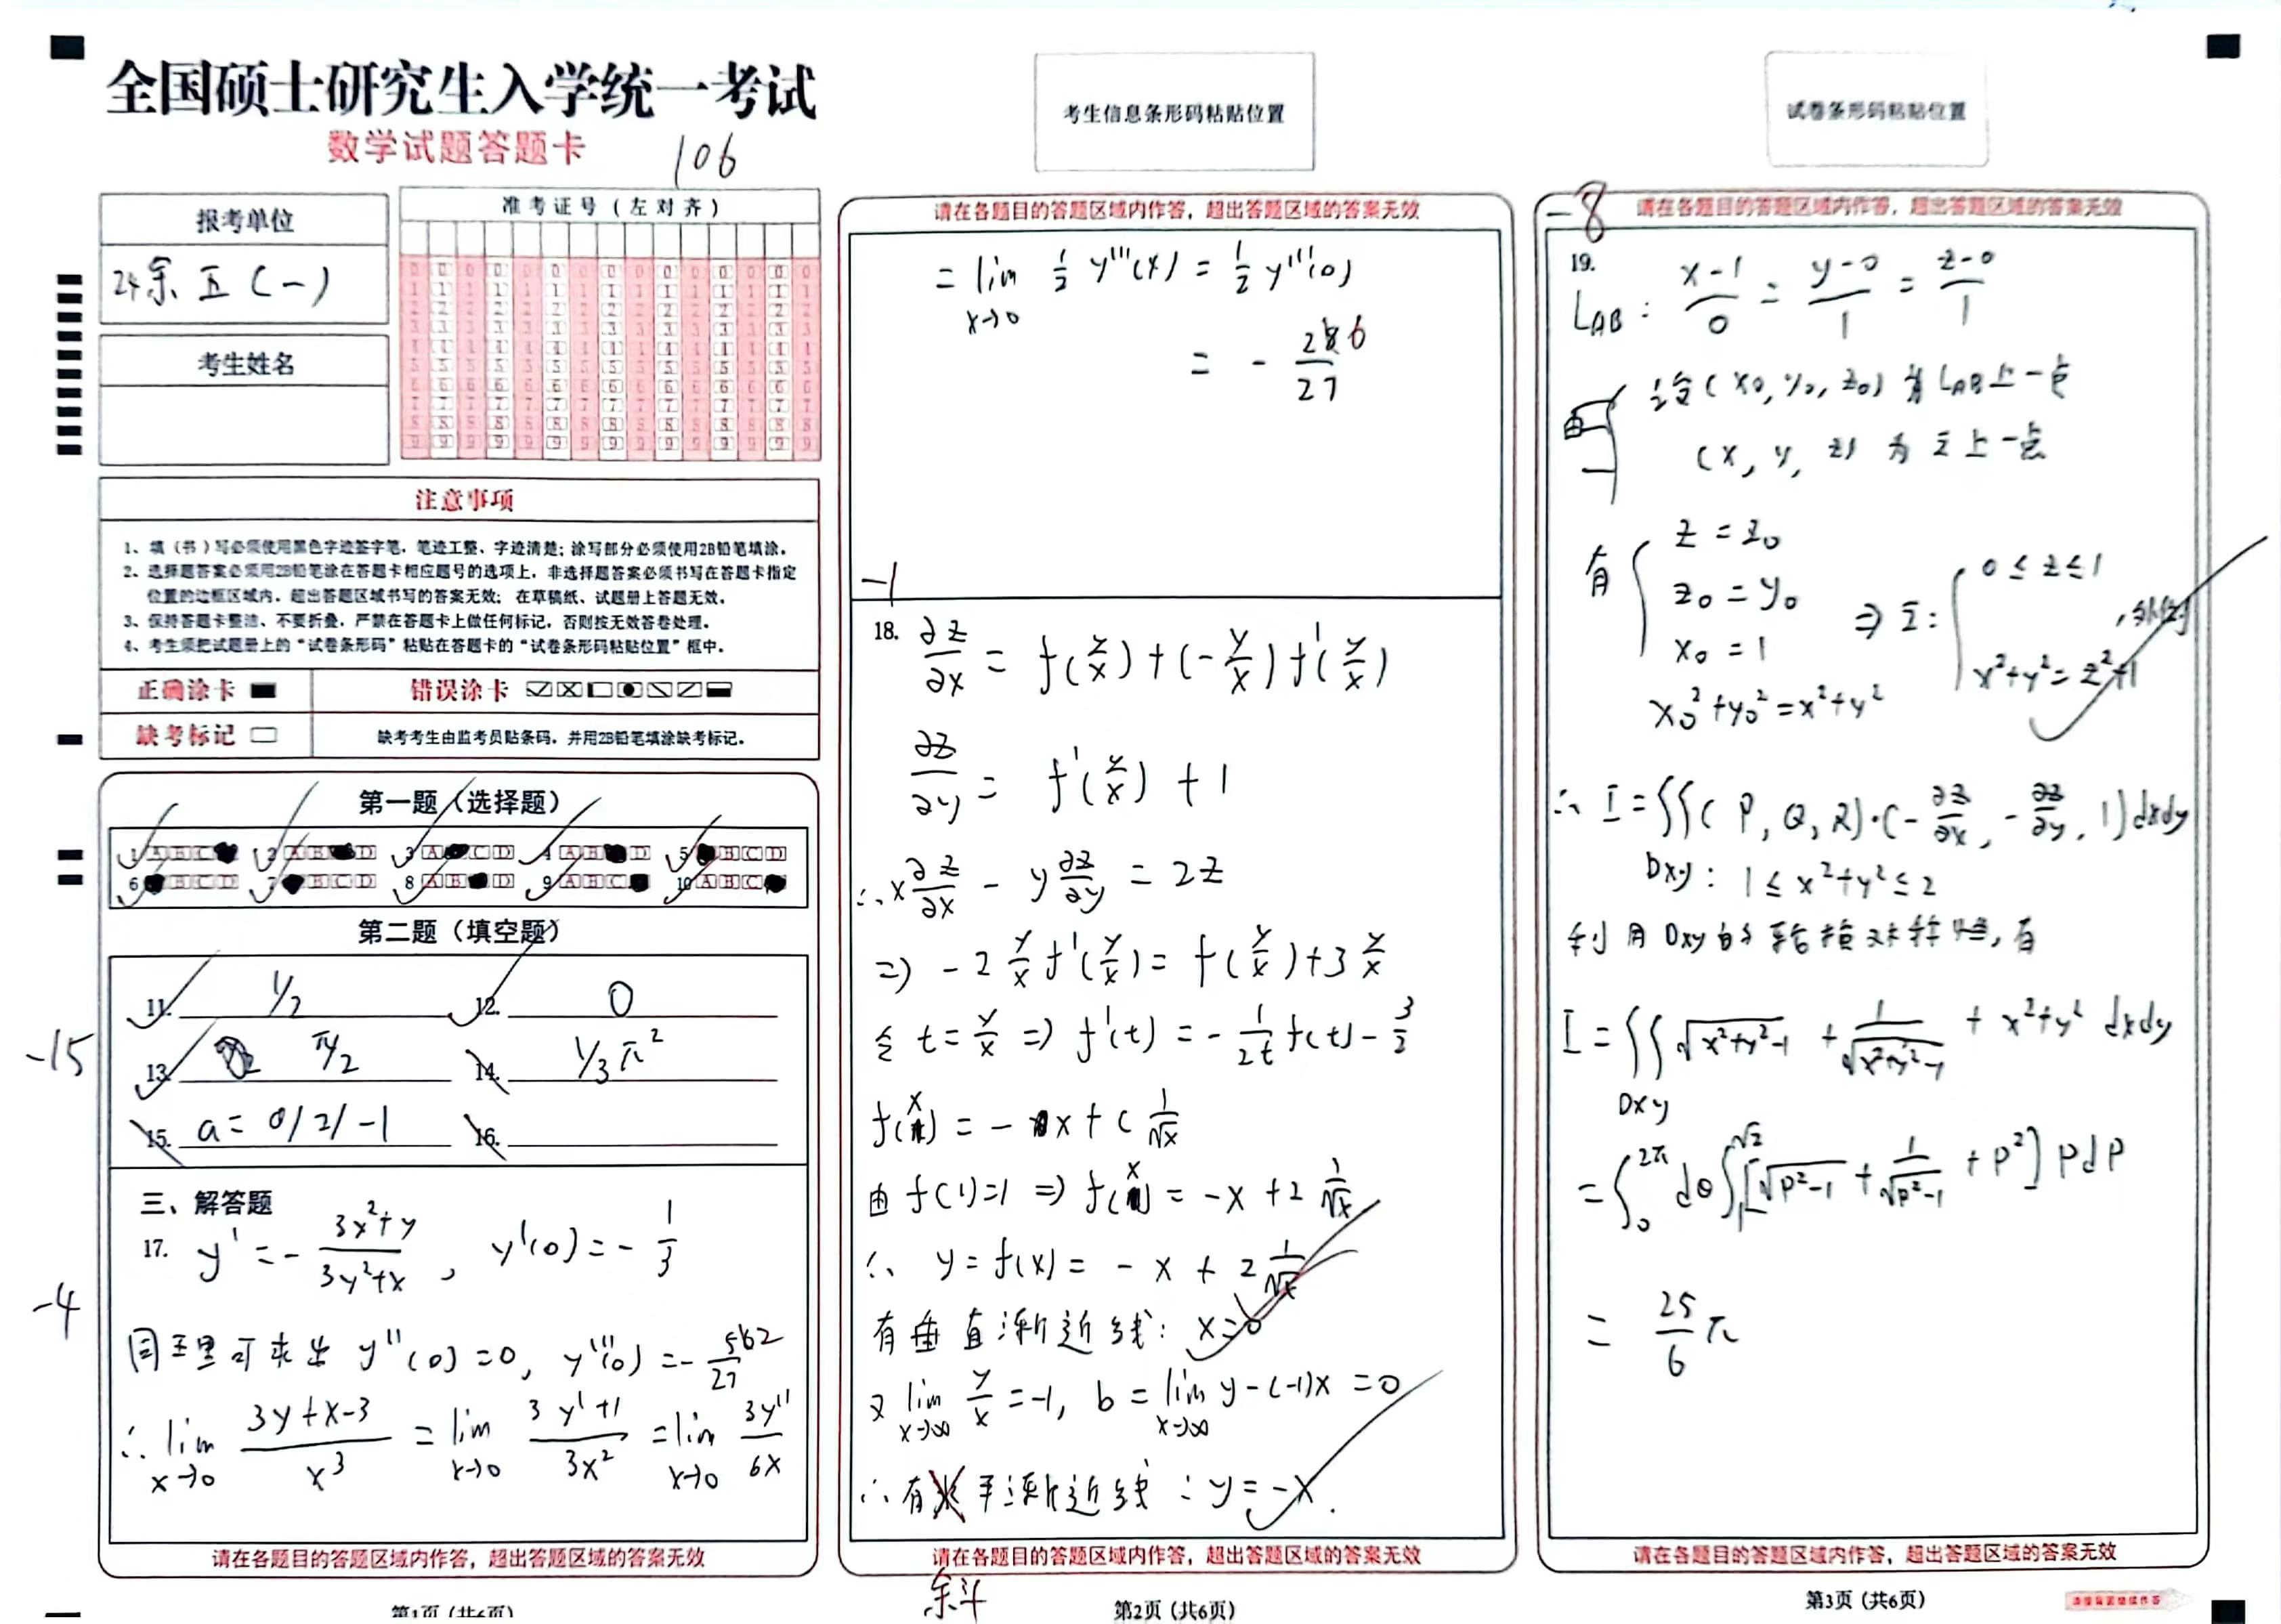 全国硕士研究生入学统一考试
数学试题答题卡
106
报考单位
24余五(一)
考生姓名
准考证号(左对齐)
注意事项
1、填(书)写必须使用黑色字迹签字笔,笔迹工整、字迹清楚;涂写部分必须使用2B铅笔填涂。
2、选择题答案必须用2B铅笔涂在答题卡相应题号的选项上,非选择题答案必须书写在答题卡指定
位置的边框区域内。超出答题区域书写的答案无效;在草稿纸、试题册上答题无效。
3、保持答题卡整洁、不要折叠,严禁在答题卡上做任何标记,否则按无效答卷处理。
4、考生须把试题册上的“试卷条形码”粘贴在答题卡的“试卷条形码粘贴位置”框中。
正确涂卡 错误涂卡
缺考标记 缺考考生由监考员贴条码,并用2B铅笔填涂缺考标记。
第一题(选择题)
1 2 3 4 5
6 7 8 9 10
第二题(填空题)
11. 1/2 12. 0
-15
13. π/2 14. 1/3 π²
15. a = 0/2/-1 16.
三、解答题
17. y' = - (3x²+y)/(3y²+x), y'(0) = - 1/3
-4
同理可求出 y''(0) = 0, y'''(0) = - 562/27
∴ lim x→0 (3y+x-3)/x³ = lim x→0 (3y'+1)/3x² = lim x→0 3y''/6x
请在各题目的答题区域内作答,超出答题区域的答案无效
第1页 (共6页)
考生信息条形码粘贴位置
请在各题目的答题区域内作答,超出答题区域的答案无效
= lim x→0 1/2 y'''(x) = 1/2 y'''(0)
= - 26/27
-1
18. ∂z/∂x = f(y/x) + (-y/x) f'(y/x)
∂z/∂y = f'(y/x) + 1
∴ x ∂z/∂x - y ∂z/∂y = 2z
=) -2 y/x f'(y/x) = f(y/x) + 3 y/x
令 t = y/x =) f'(t) = - 1/2t f(t) - 3/2
f(x) = - x + C 1/√x
由 f(1)=1 =) f(x) = -x + 2 1/√x
∴ y = f(x) = - x + 2 1/√x
有垂直渐近线: x=0
又 lim x→∞ y/x = -1, b = lim x→∞ y-(-1)x = 0
∴ 有 渐近线: y = -x.
请在各题目的答题区域内作答,超出答题区域的答案无效
余斗
第2页 (共6页)
试卷条形码粘贴位置
-8
请在各题目的答题区域内作答,超出答题区域的答案无效
19. L_AB: (x-1)/0 = (y-0)/1 = (z-0)/1
设 (x₀, y₀, z₀) 为 L_AB 上一点
由
(x, y, z) 为 Σ 上一点
有 { z = z₀
z₀ = y₀
x₀ = 1
x₀²+y₀² = x²+y²
⇒ Σ: { 0 ≤ z ≤ 1
x²+y² = z²+1
∴ I = ∬ (P, Q, R)·(-∂z/∂x, -∂z/∂y, 1) dxdy
Dxy: 1 ≤ x²+y² ≤ 2
利用 Dxy 的轮换对称性, 有
I = ∬ Dxy √(x²+y²-1) + 1/√(x²+y²-1) + x²+y² dxdy
= ∫₀^2π dθ ∫₁^√2 [√(ρ²-1) + 1/√(ρ²-1) + ρ²] ρdρ
= 25/6 π
请在各题目的答题区域内作答,超出答题区域的答案无效
第3页 (共6页)